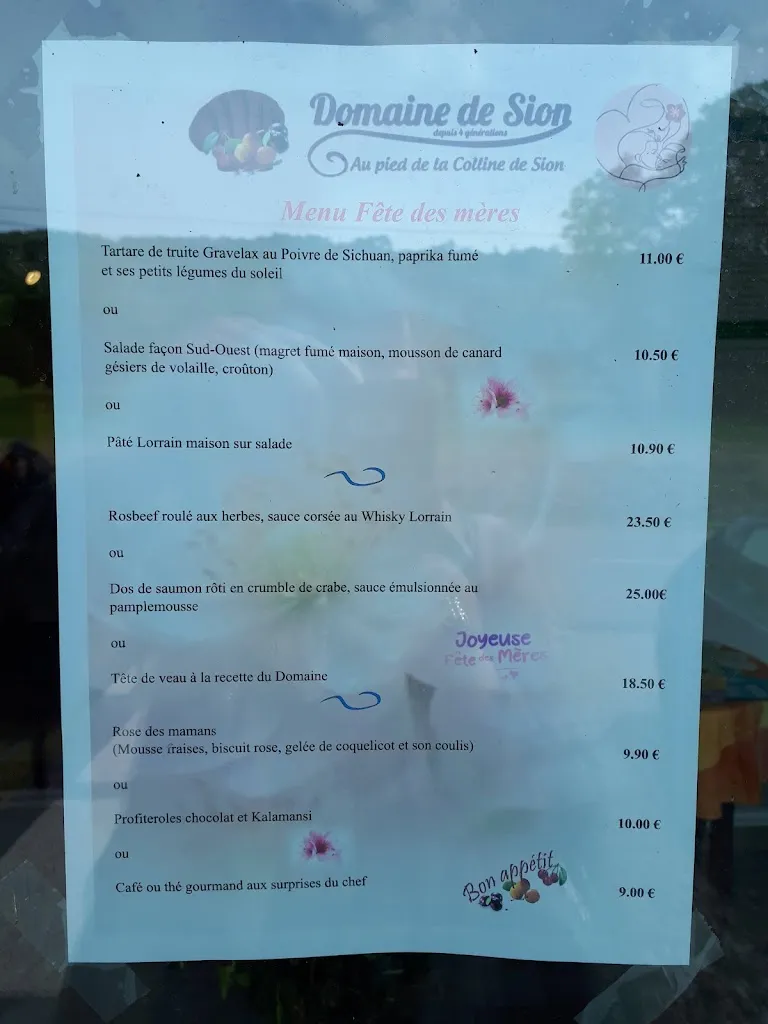 Domaine de Sion
depuis 4 générations
Au pied de la Colline de Sion
Menu Fête des mères
Tartare de truite Gravelax au Poivre de Sichuan, paprika fumé 11.00 €
et ses petits légumes du soleil
ou
Salade façon Sud-Ouest (magret fumé maison, mousson de canard 10.50 €
gésiers de volaille, croûton)
ou
Pâté Lorrain maison sur salade 10.90 €
Rosbeef roulé aux herbes, sauce corsée au Whisky Lorrain 23.50 €
ou
Dos de saumon rôti en crumble de crabe, sauce émulsionnée au 25.00€
pamplemousse
ou
Joyeuse
Fête des Mères
Tête de veau à la recette du Domaine 18.50 €
Rose des mamans
(Mousse fraises, biscuit rose, gelée de coquelicot et son coulis) 9.90 €
ou
Profiteroles chocolat et Kalamansi 10.00 €
ou
Café ou thé gourmand aux surprises du chef 9.00 €
Bon appétit